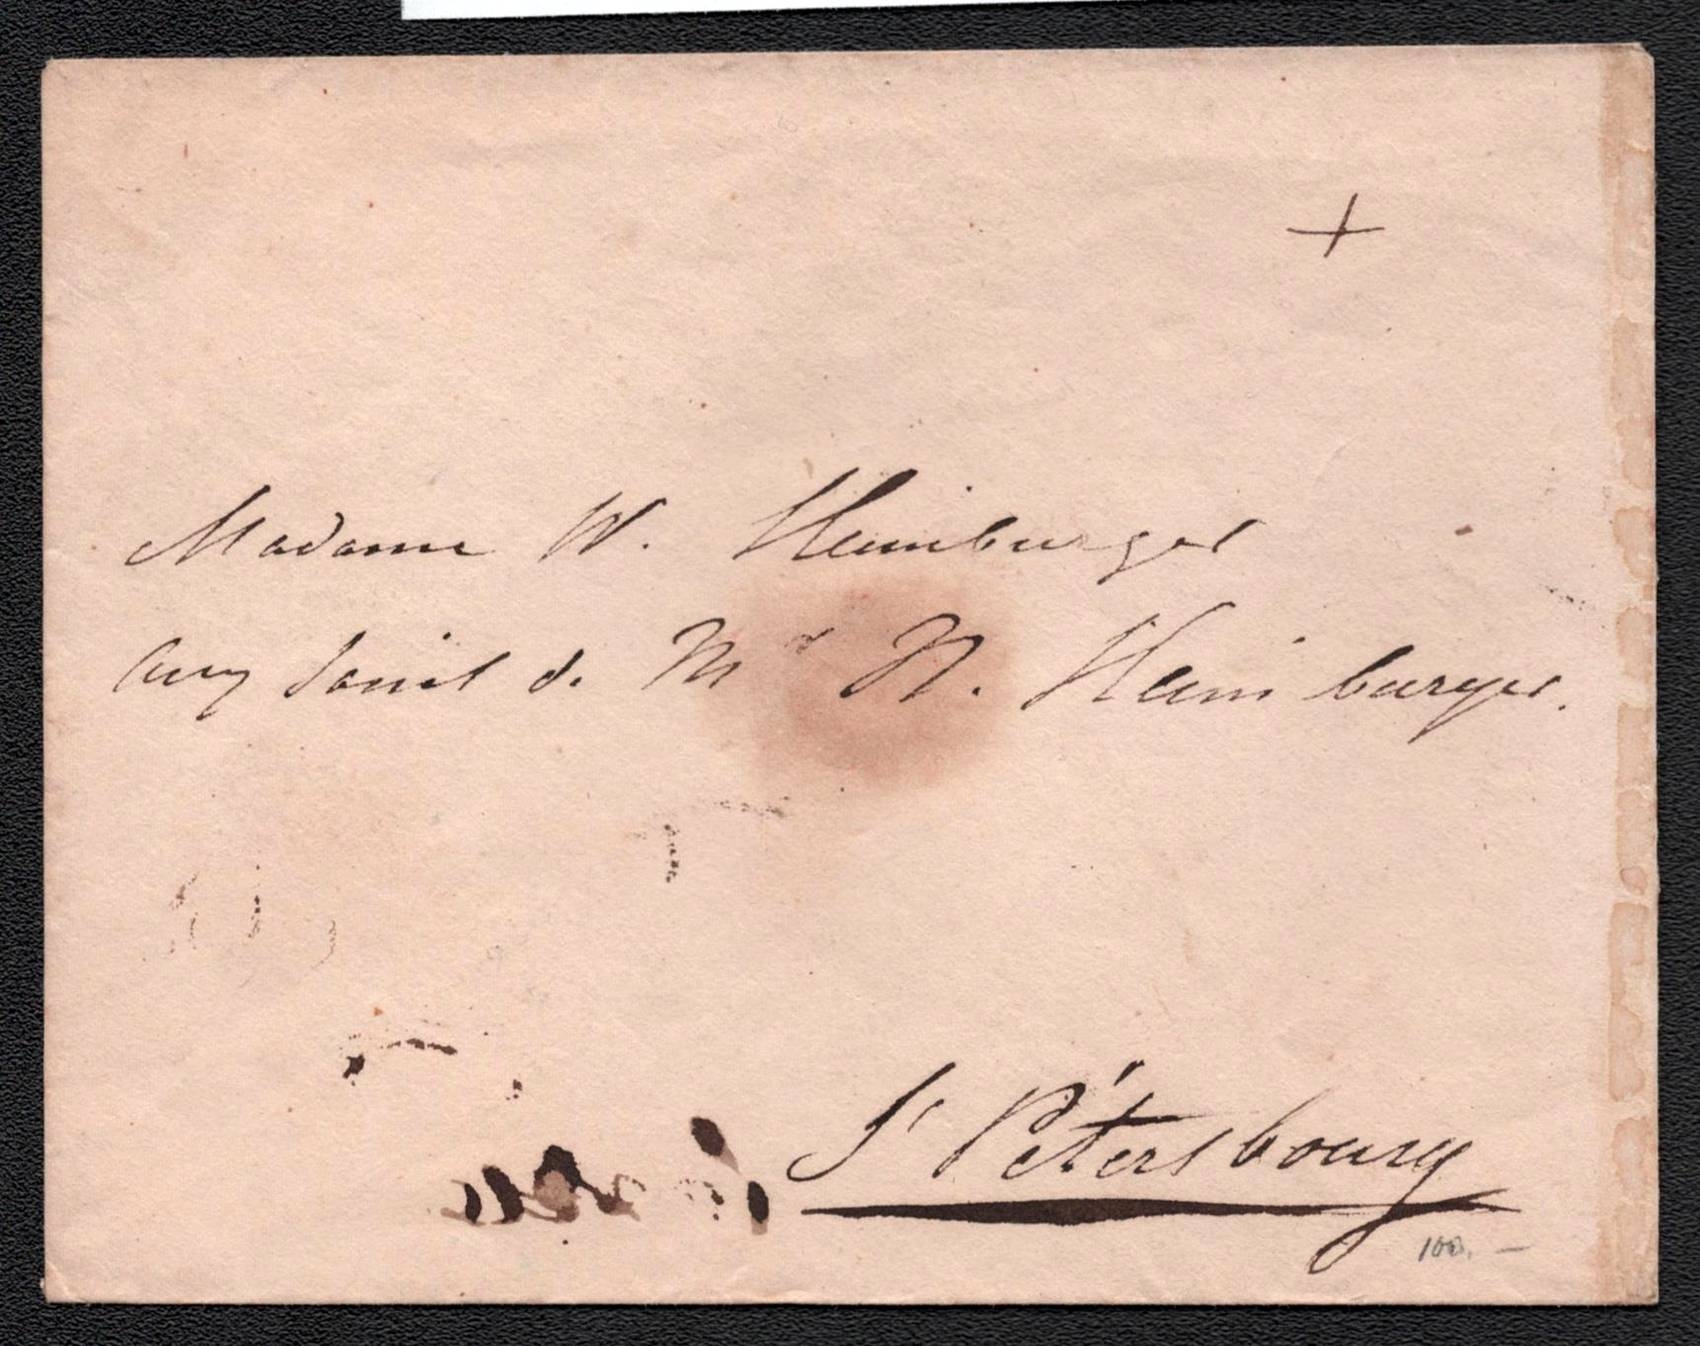 Madame W. Heimburger
aux soins de Mr N. Heimburger.
St Pétersbourg
100. –